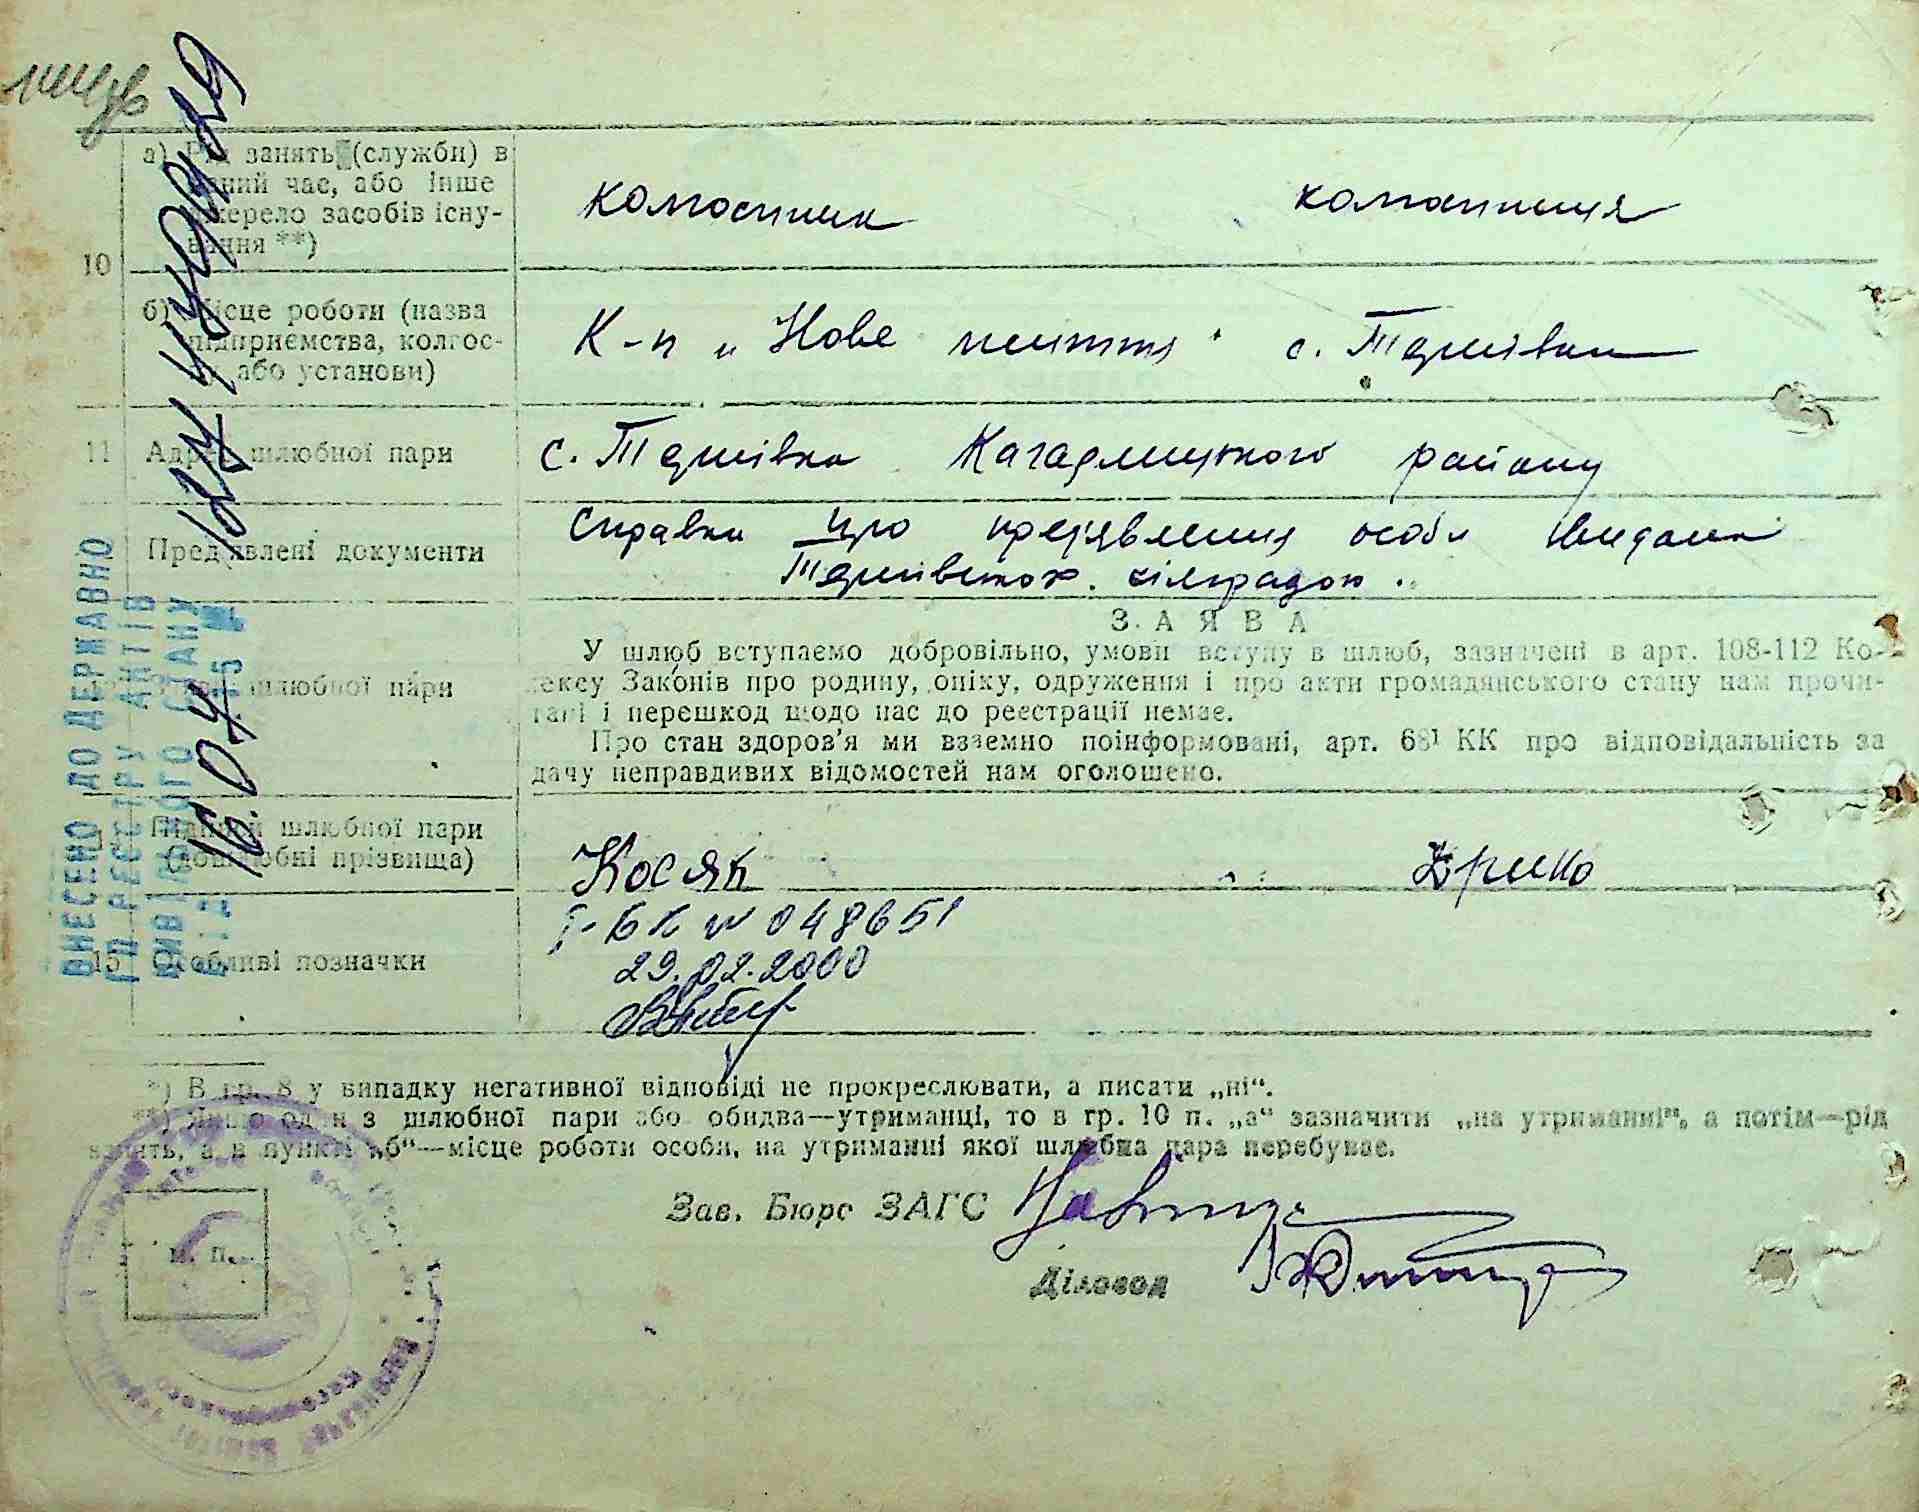 10
а) Рід занять (служби) в
даний час, або інше
джерело засобів існу-
вання **)
колгоспник
колгоспниця
б) Місце роботи (назва
підприємства, колгос-
пу або установи)
К-п „Нове життя" с. Тернівка
11
Адреса шлюбної пари
с. Тернівка Кагарлицького району
Пред'явлені документи
Справки про пред'явлення особи видана
сільрадою.
шлюбної пари
ЗАЯВА
У шлюб вступаємо добровільно, умови вступу в шлюб, зазначені в арт. 108-112 Ко-
дексу Законів про родину, опіку, одруження і про акти громадянського стану нам прочи-
тані і перешкод щодо нас до реєстрації немає.
Про стан здоров'я ми взаємно поінформовані, арт. 68¹ КК про відповідальність за
дачу неправдивих відомостей нам оголошено.
Підписи шлюбної пари
(дошлюбні прізвища)
Косяк
15
Особливі позначки
І-БК № 048651
29.02.2000
ВНЕСЕНО ДО ДЕРЖАВНО
ГО РЕЄСТРУ АКТІВ
ЦИВІЛЬНОГО СТАНУ
16.04.15
*) В гр. 8 у випадку негативної відповіді не прокреслювати, а писати „ні“.
**) Якщо один з шлюбної пари або обидва—утриманці, то в гр. 10 п. „а“ зазначити „на утриманні“, а потім—рід
занять, а в пункті „б“—місце роботи особи, на утриманні якої шлюбна пара перебуває.
Зав. Бюро ЗАГС
Діловод
м. п.